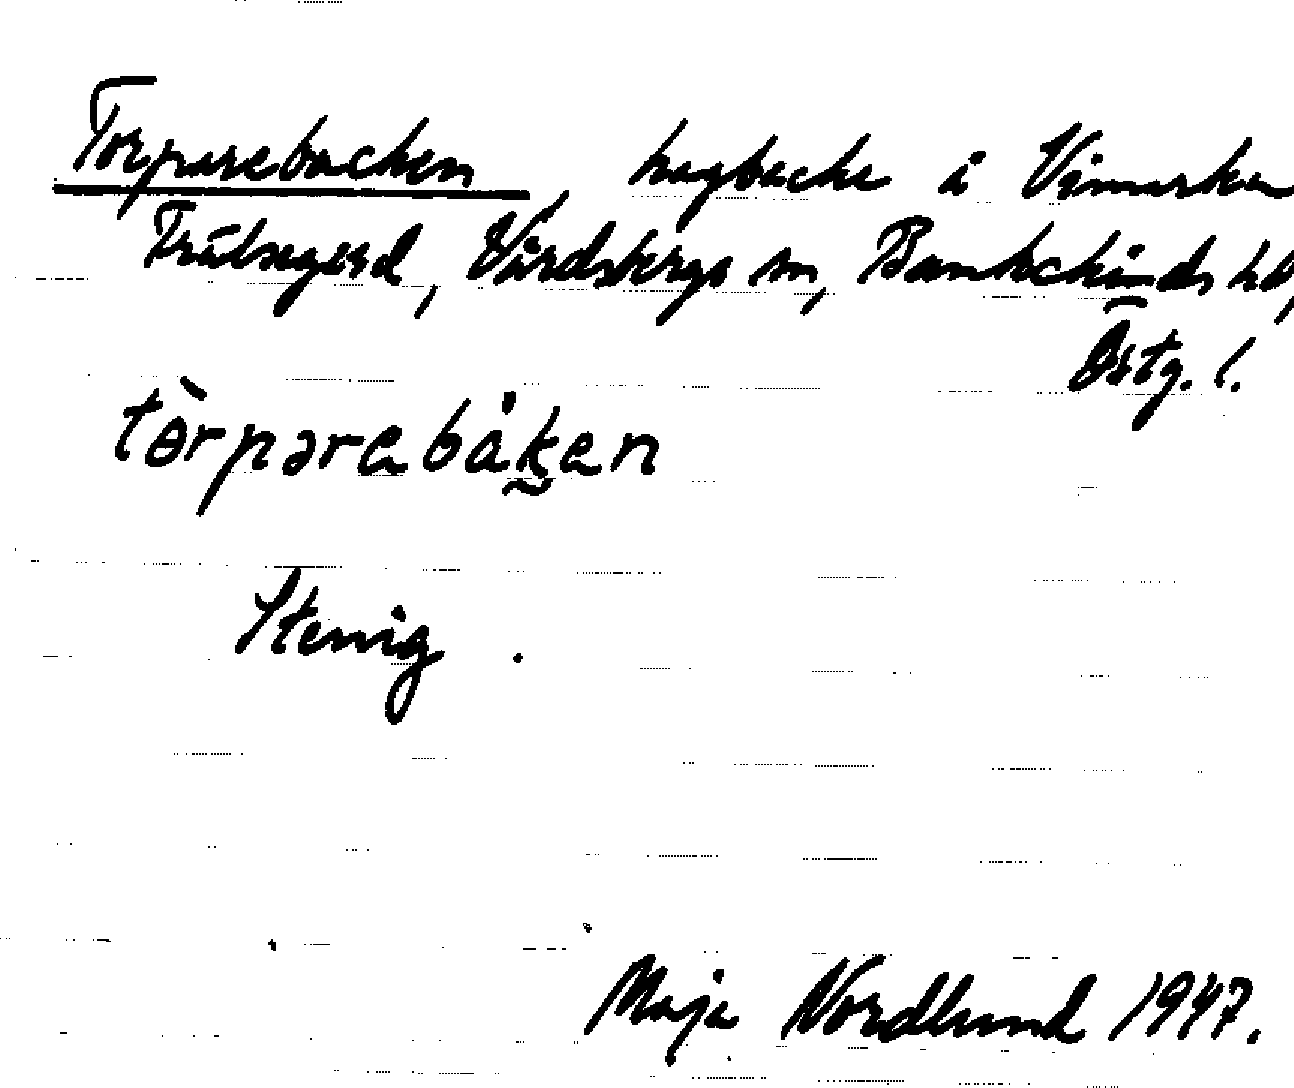 Torparebacken, hagbacke å Vimarka
Frälsegård, Vårdsbergs sn, Bankekinds hd,
Östg. l.
tòrparabåken
Stenig.
Maja Nordlund 1947.